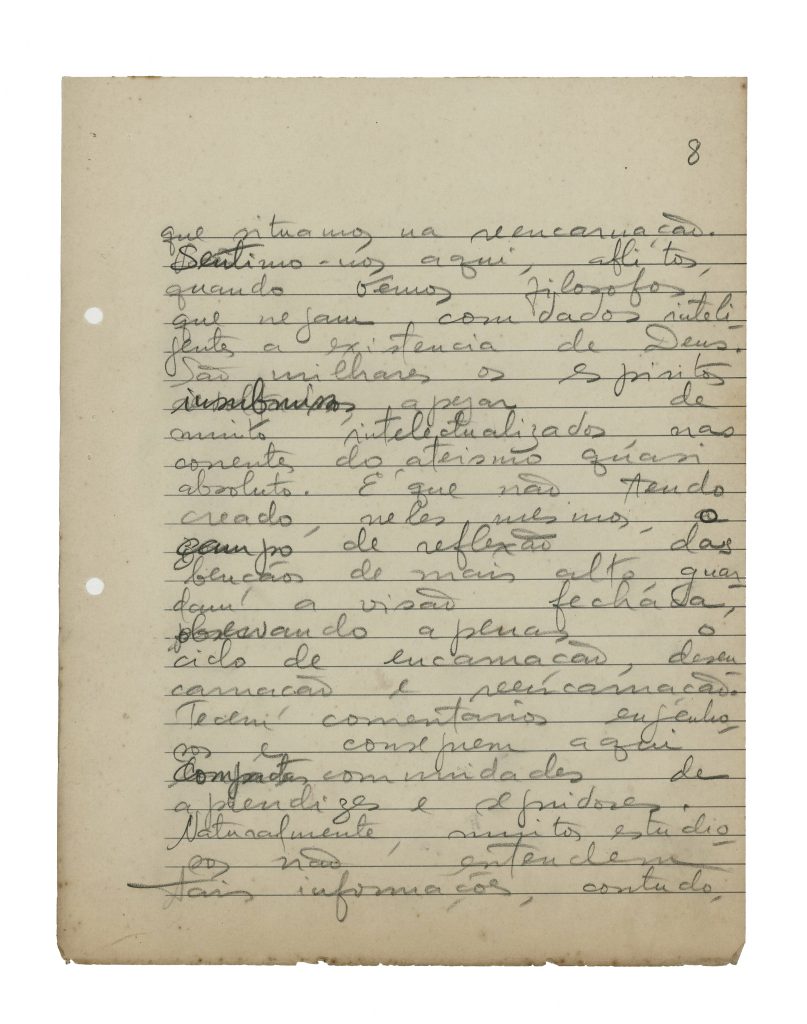 8
que situamos na reencarnação.
Sentimo-nos aqui, aflitos,
quando vemos filosofos
que negam com dados inteli-
gentes a existencia de Deus.
São milhares os espiritos
insubmissos, apezar de
muito intelectualizados nas
correntes do ateismo quasi
absoluto. E' que não tendo
creado, neles mesmos, o
campo de reflexão das
bençãos de mais alto, guar-
dam a visão fechada,
observando apenas o
ciclo de encarnação, desen-
carnação e reencarnação.
Tecem comentarios engenho-
sos e conseguem aqui
compactas comunidades de
aprendizes e seguidores.
Naturalmente, muitos estudio-
sos não entendem
tais informações, contudo,